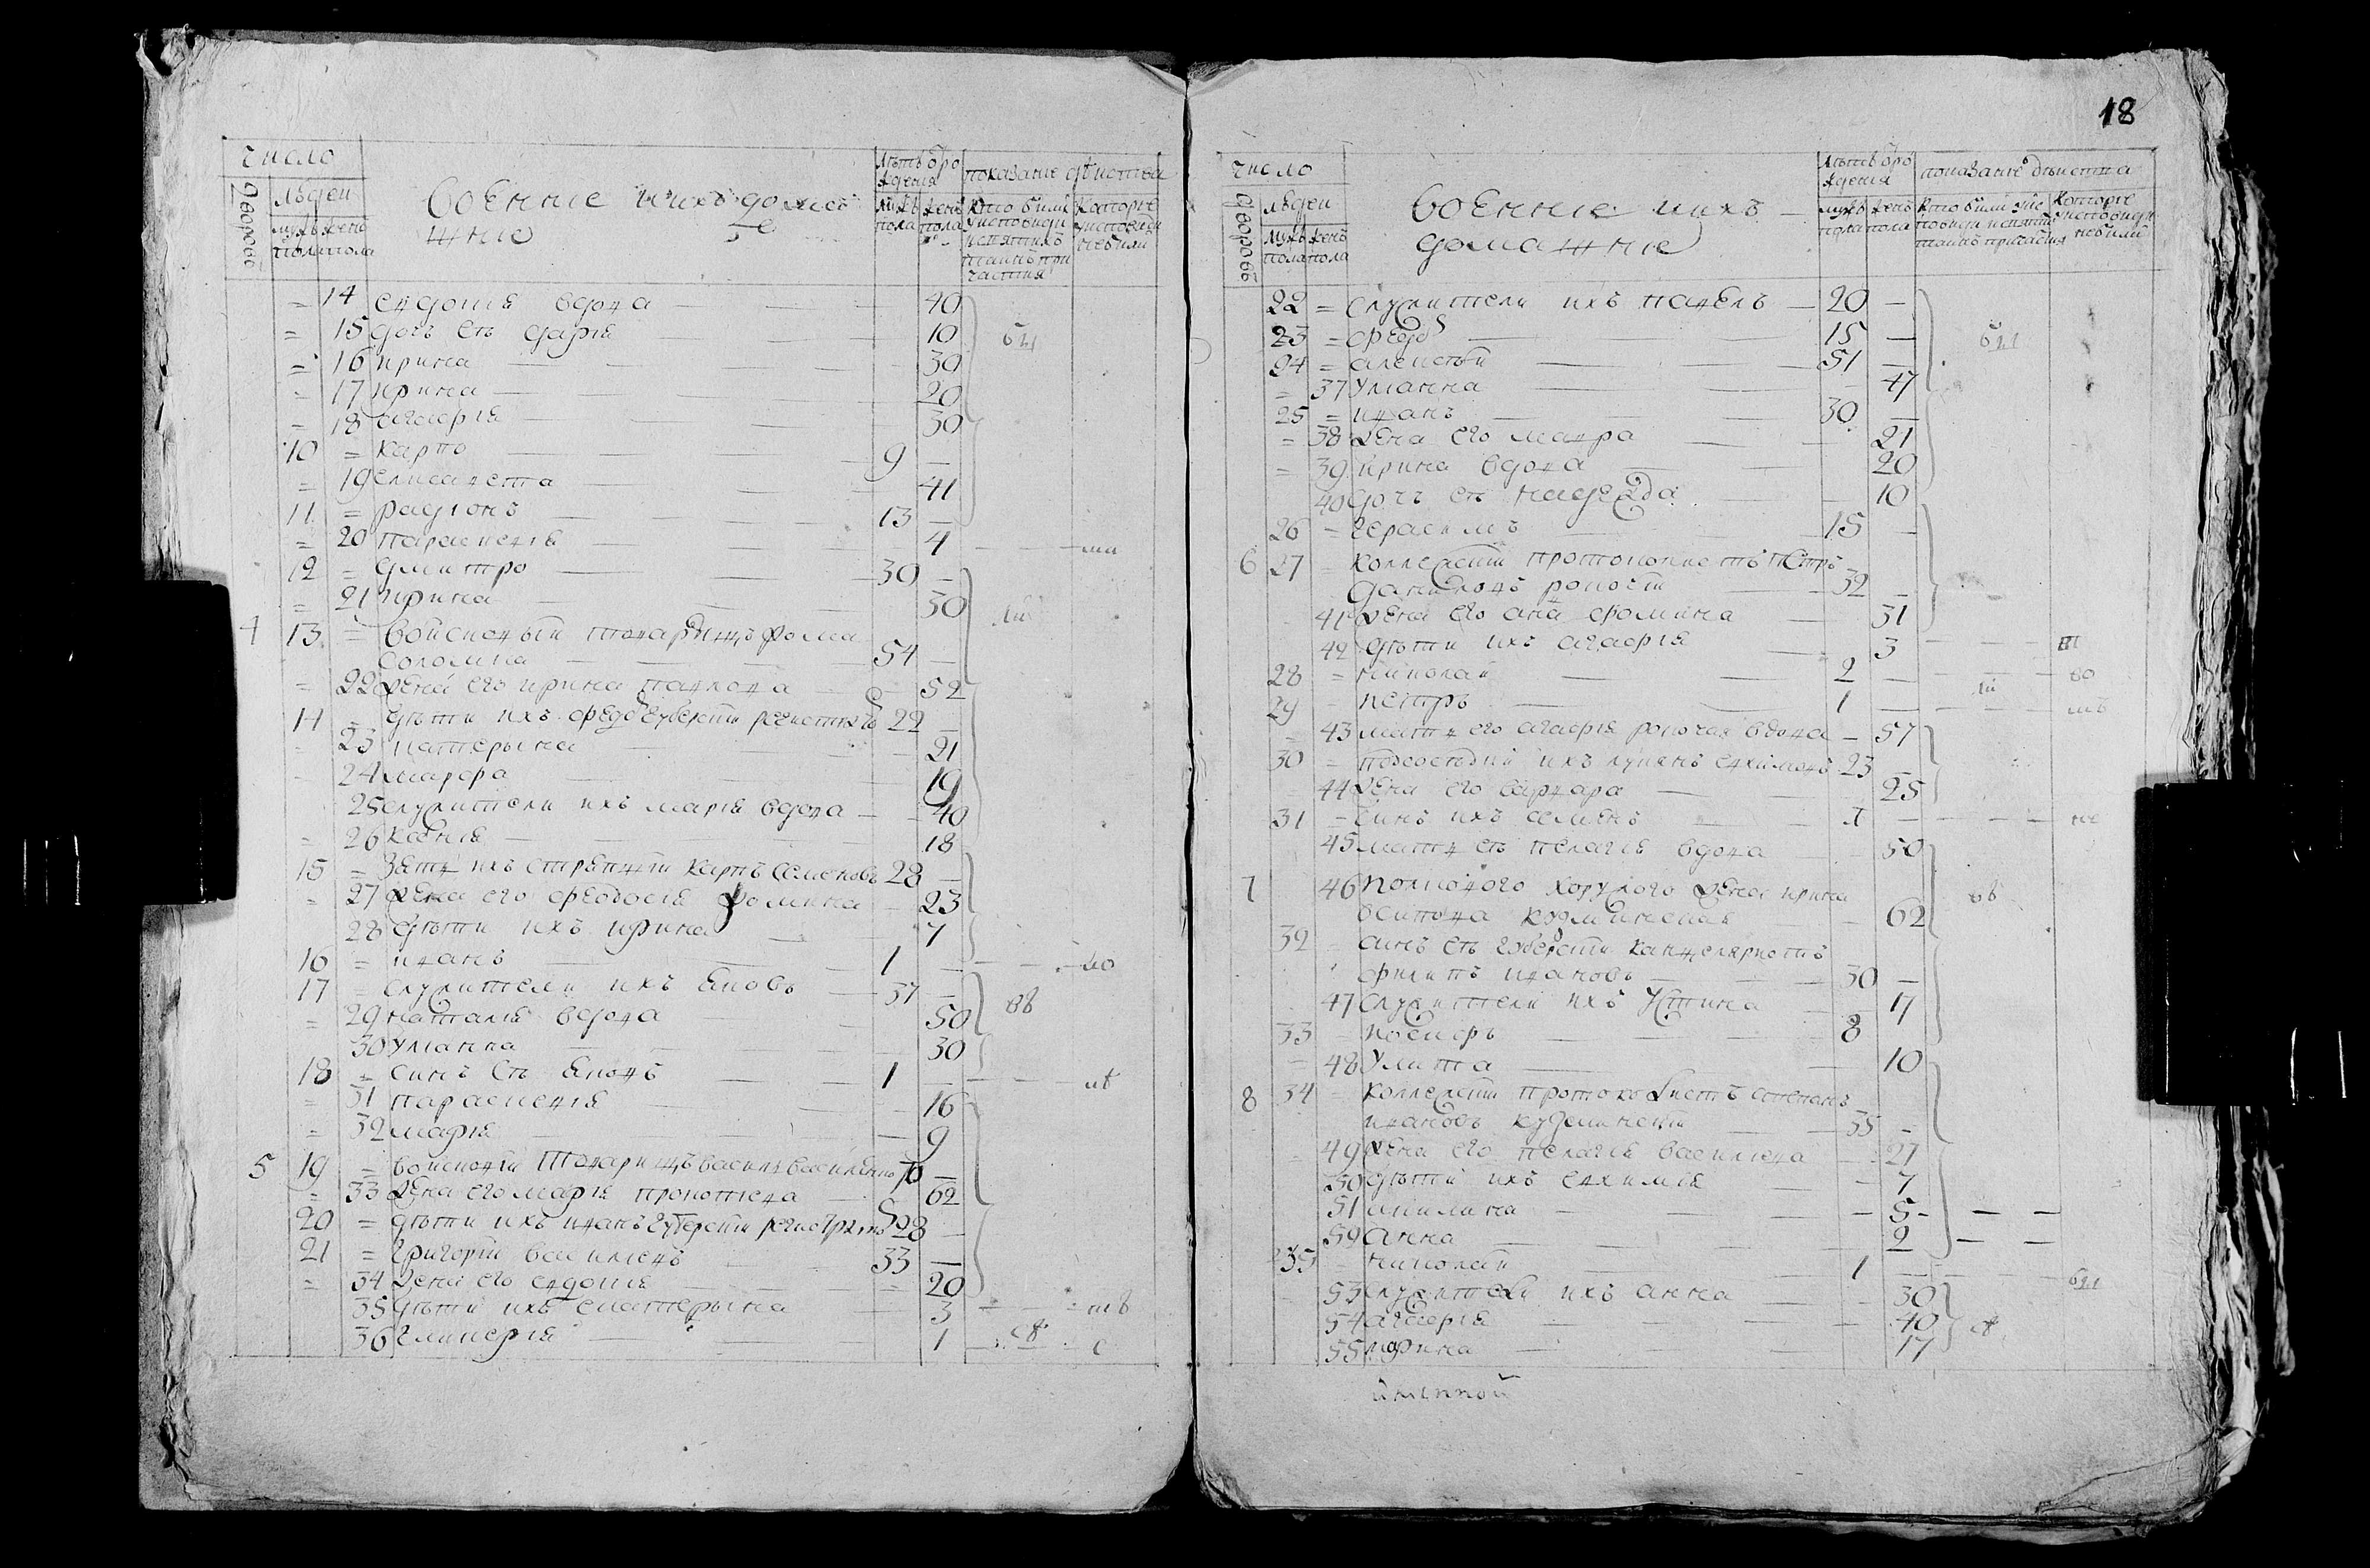 число
Дворовъ
людей
мужъ женъ
пола пола
военние и ихъ домаш
ние
лѣтъ от ро
ждения
мужъ женъ
пола пола
показание действа
кто были
у исповеди
и святихъ
таинъ при
частия
которие
у исповеди
не были
= 14 евдокия вдова — 40
= 15 дочь ея дария — 10
= 16 ирина — 30
= 17 ирина — 20
= 18 агафия — 30
10 = карпо — 9 —
= 19 елисавета — 41
11 = радионъ — 13 —
= 20 параскевия — 4
12 = дмитро — 30 —
= 21 ирина — 30
4 13 = войсковый товарищъ фома
соломка — 54 —
= 22 жена его ирина павлова — 52
14 = дѣти ихъ федоръ губерский регистраторъ 22 —
23 катерина — 21
24 марфа — 19
25 служители ихъ мария вдова — 40
= 26 ксения — 18
15 = зять ихъ карпъ семеновъ 28 —
= 27 жена его феодосия фомина — 23
28 дѣти ихъ ирина — 7
16 = иванъ — 1 —
17 = служители ихъ яковъ — 37 —
= 29 наталия вдова — 50
30 улианна — 30
18 = синъ ея яковъ — 1 —
= 31 параскевия — 16
= 32 мария — 9
5 19 = войсковий товарищъ василь василенко 70 —
= 33 жена его мария прокопиева — 62
20 = дѣти ихъ иванъ губерский регистраторъ 28 —
21 = григорий василиевъ — 33 —
= 34 жена его евдокия — 20
35 дѣти ихъ екатерина — 3
36 гликерия — 1
18
число
дворовъ
людей
мужъ женъ
пола пола
военние и ихъ
домашние
лѣтъ от ро
ждения
мужъ женъ
пола пола
показание действа
кто были у ис
поведи и святихъ
таинъ причастия
которие
у исповеди
не били
22 = служители ихъ павелъ — 20 —
23 = федоръ — 15 —
24 = алексѣй — 51 —
= 37 улианна — 47
25 = иванъ — 30 —
= 38 жена его мавра — 21
= 39 ирина вдова — 20
40 дочь ея надежда — 10
26 = герасимъ — 15 —
6 27 = коллежский протоколистъ петръ
данилов — 32 —
41 жена его анна фомина — 31
42 дѣти ихъ агафия — 3
28 = николай — 2 —
29 = петръ — 1 —
= 43 мать его агафия вдова — 57
30 = подсоседний ихъ лукянъ евхимовъ 23 —
44 жена его варвара — 25
31 = синъ ихъ семенъ —
45 мать ея пелагия вдова — 50
7 46 полкового хорунжого жена ирина
— 62
32 = синъ ея губерский канцеляристъ
филипъ ивановъ — 30 —
47 служители ихъ устина — 17
33 = — 8
48 улита — 10
8 34 = коллежский протоколистъ степанъ
ивановъ — 35 —
49 жена его пелагия василиева — 27
50 дѣти ихъ евхимия — 7
51 акилина — 5
52 анна — 2
35 = николай — 1
53 служители ихъ анна — 30
54 агафия — 40
55 ирина — 17